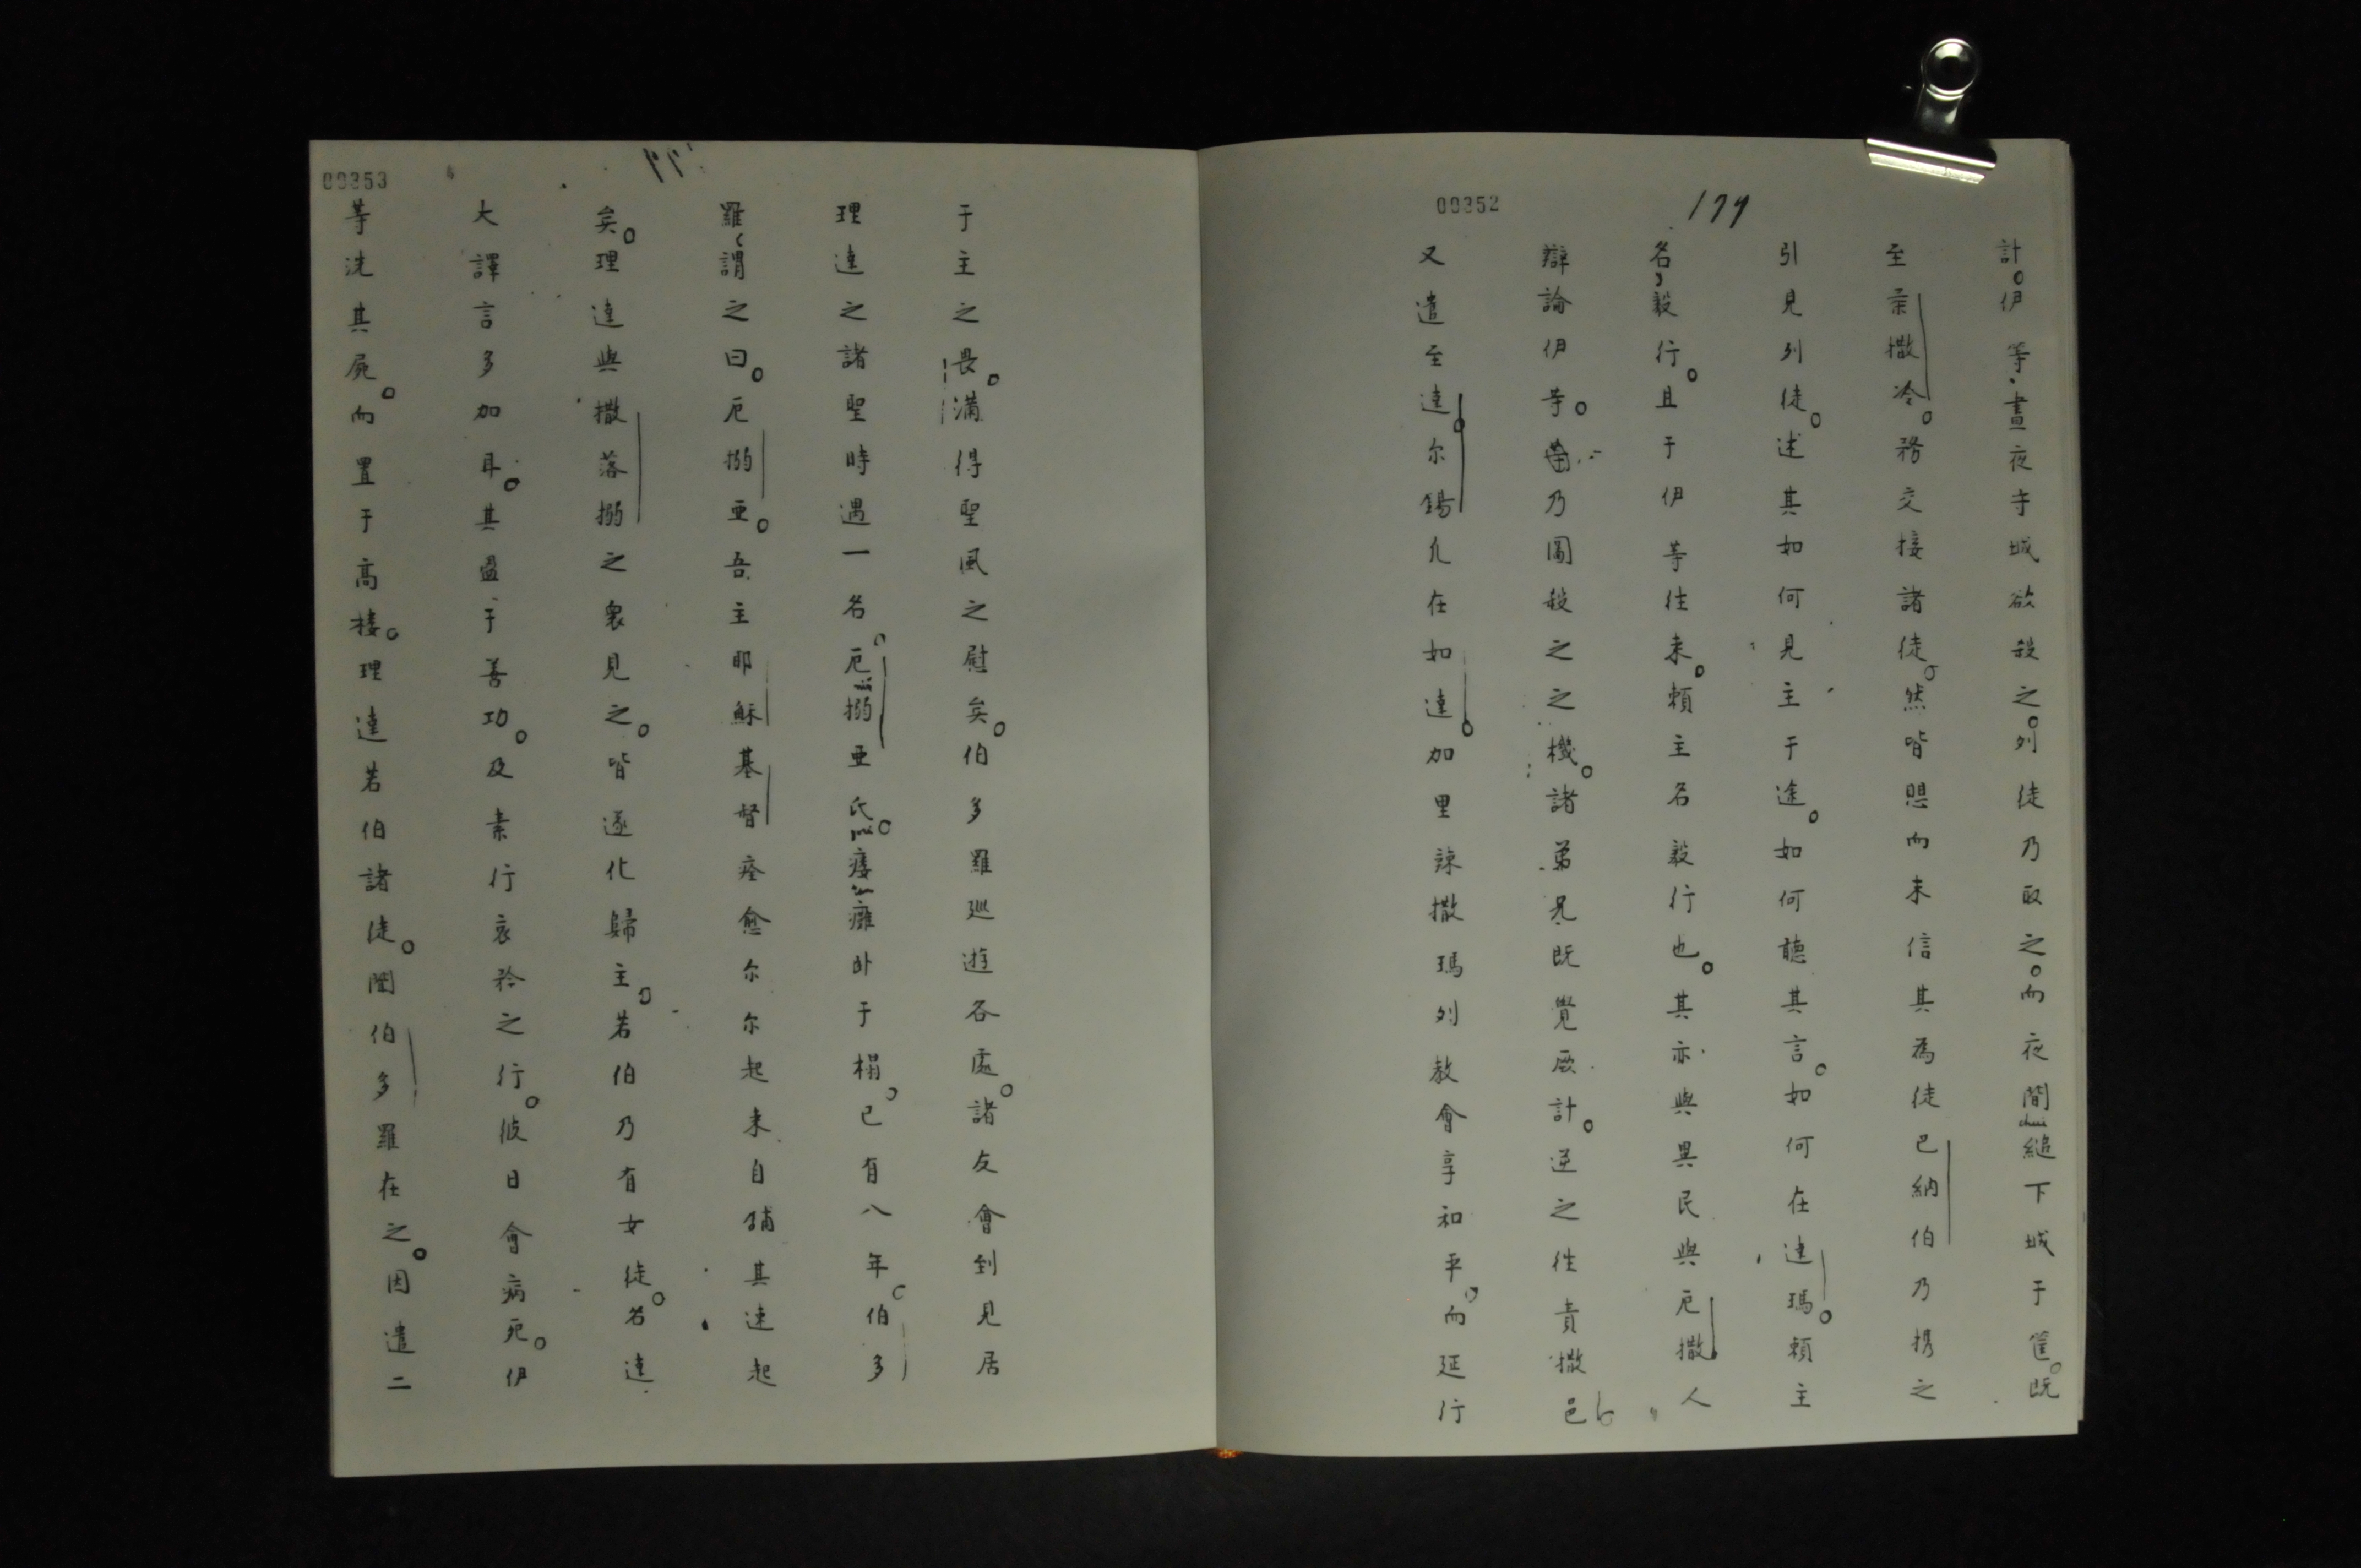 00352
179
計。伊等、晝夜守城欲殺之。列徒乃取之。而夜間縋下城于筐。既
chui
至柔撒冷。務交接諸徒。然皆思而未信其為徒巴納伯乃携之
引見列徒。述其如何見主于途。如何聽其言。如何在達瑪。頼主
名、毅行。且于伊等徃来。頼主名毅行也。其亦與異民與厄撒人
辯論伊等。乃圖殺之之機。諸弟兄既覺厥計。逆之徃責撒邑
又遣至達。尔鍚凢在如達。加里諫撒瑪列教會享和平、而延行
00353
于主之畏。滿得聖風之慰矣。伯多羅廵遊各處。諸友會到見居
理達之諸聖時遇一名。厄搦亜氏。痿癱卧于榻、已有八年。伯多
羅、謂之曰。厄搦亜。吾主耶穌基督痊愈尔尔起来自鋪其速起
矣。理達與撒落搦之衆見之。皆遂化歸主。若伯乃有女徒。名達
大譯言多加耳。其盈于善功。及素行哀矜之行。彼日會病死。伊
等洗其屍。而置于高楼。理達若伯諸徒。聞伯多羅在之。因遣二